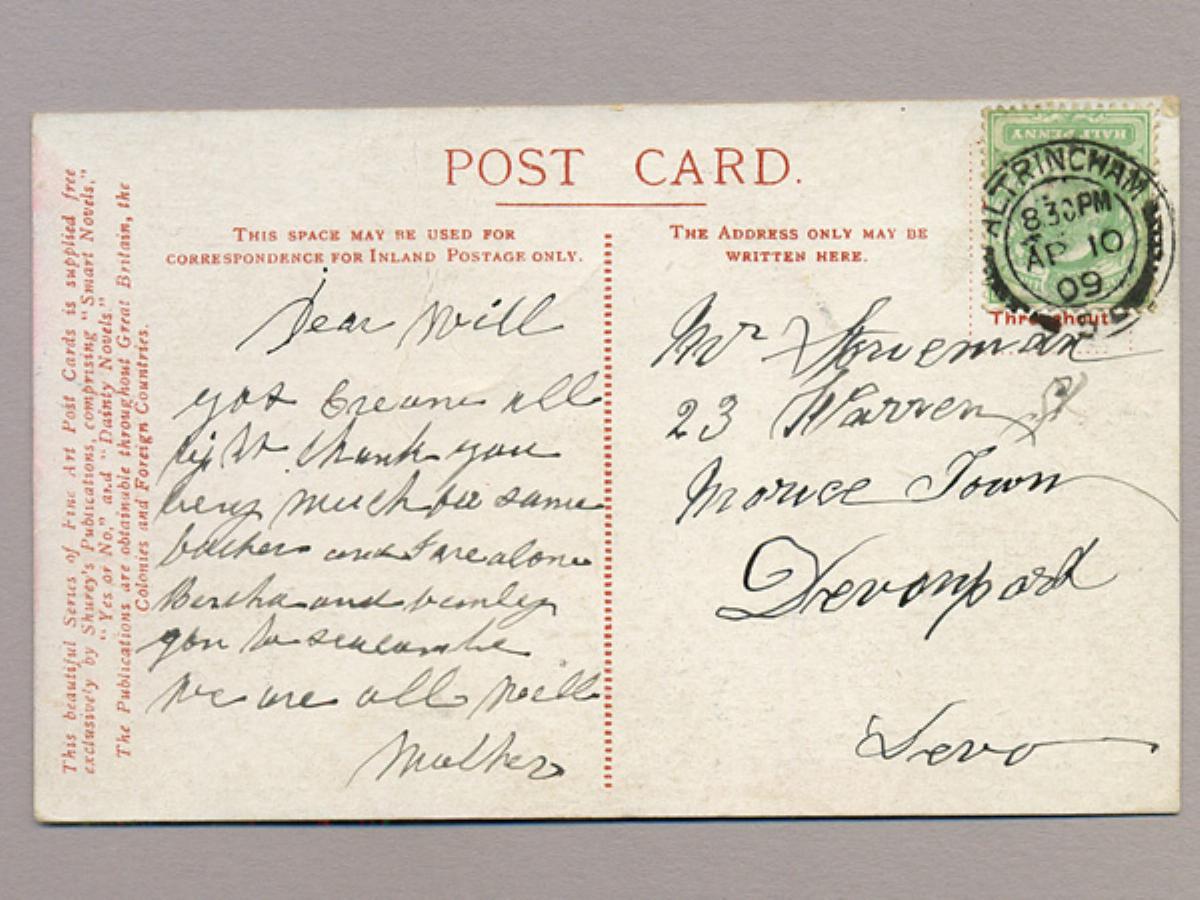 POST CARD.
THIS SPACE MAY BE USED FOR
CORRESPONDENCE FOR INLAND POSTAGE ONLY.
THE ADDRESS ONLY MAY BE
WRITTEN HERE.
HALF PENNY
ALTRINCHAM
8 30 PM
AP 10
09
Throughout
This beautiful Series of Fine Art Post Cards is supplied free
exclusively by Shurey's Publications, comprising "Smart Novels,"
"Yes or No," and "Dainty Novels."
The Publications are obtainable throughout Great Britain, the
Colonies and Foreign Countries.
Dear Will
got all
right thank you
very much
and I are alone
Bertha and
gon to
we are all well
Mother
Mr
23 Warren St
Morice Town
Devonport
Devo